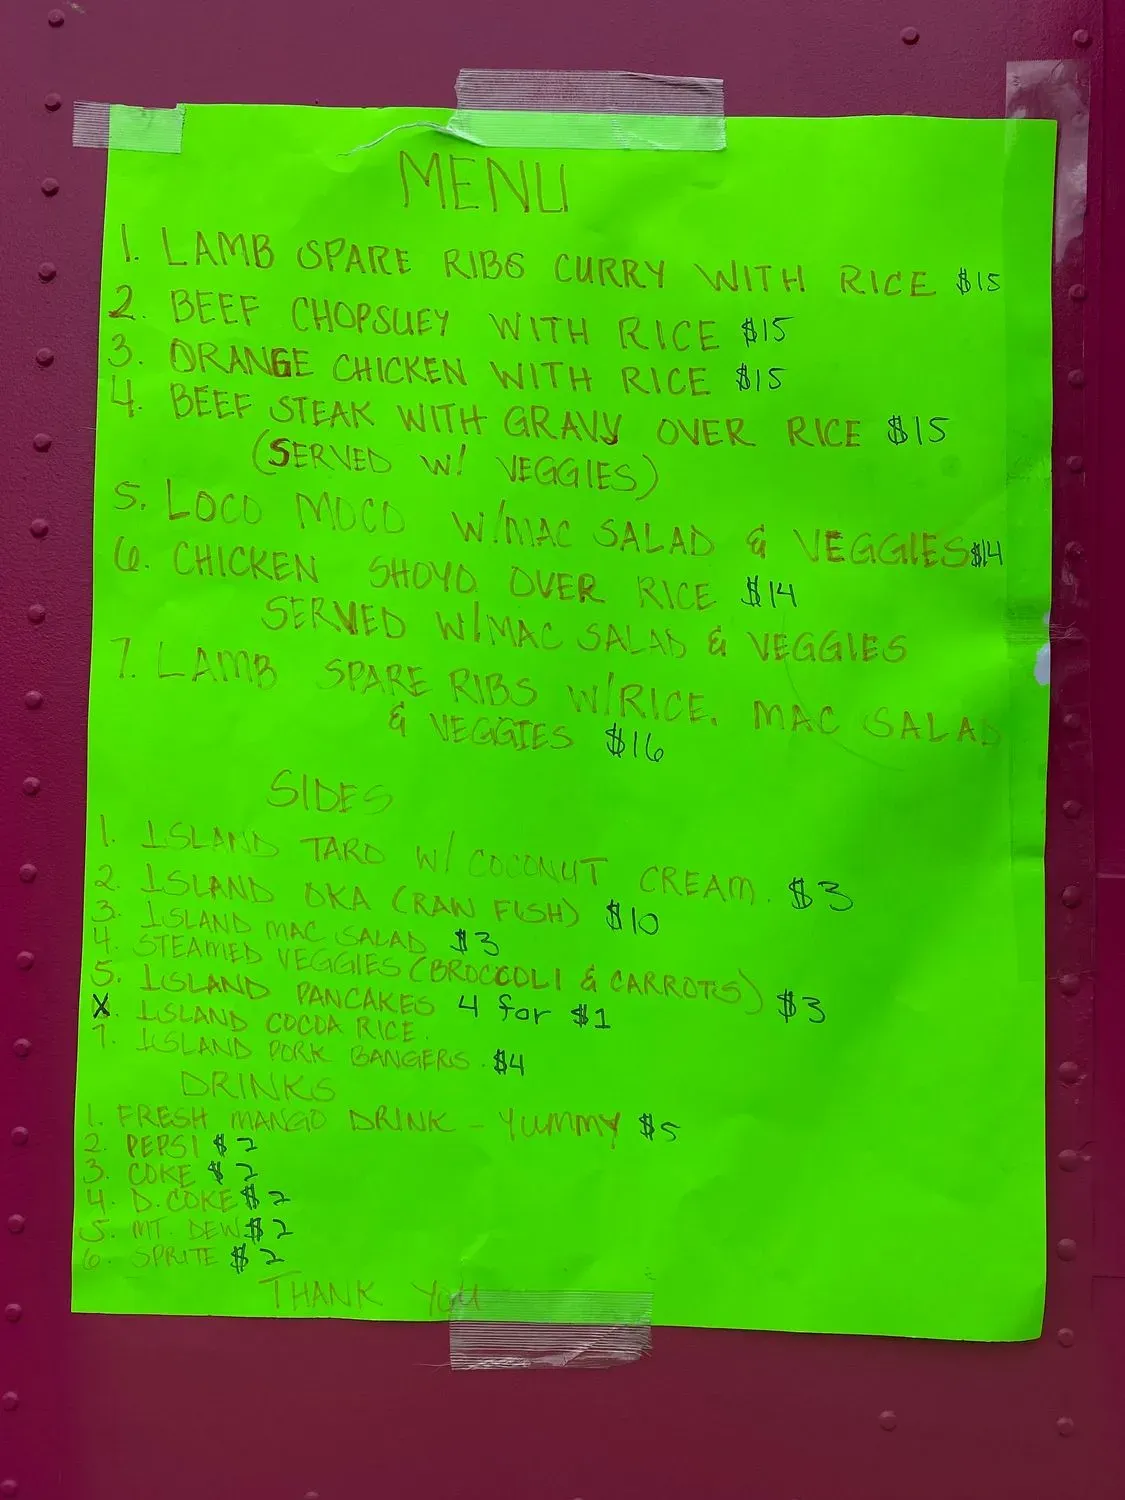 MENU
1. LAMB SPARE RIBS CURRY WITH RICE $15
2. BEEF CHOPSUEY WITH RICE $15
3. ORANGE CHICKEN WITH RICE $15
4. BEEF STEAK WITH GRAVY OVER RICE $15
(SERVED W/ VEGGIES)
5. LOCO MOCO W/MAC SALAD & VEGGIES $14
6. CHICKEN SHOYO OVER RICE $14
SERVED W/MAC SALAD & VEGGIES
7. LAMB SPARE RIBS W/RICE. MAC SALAD
& VEGGIES $16
SIDES
1. ISLAND TARO W/ COCONUT CREAM. $3
2. ISLAND OKA (RAW FISH) $10
3. ISLAND MAC SALAD $3
4. STEAMED VEGGIES (BROCCOLI & CARROTS) $3
5. ISLAND PANCAKES 4 for $1
X. ISLAND COCOA RICE.
7. ISLAND PORK BANGERS. $4
DRINKS
1. FRESH MANGO DRINK - YUMMY $5
2. PEPSI $2
3. COKE $2
4. D. COKE $2
5. MT. DEW $2
6. SPRITE $2
THANK YOU